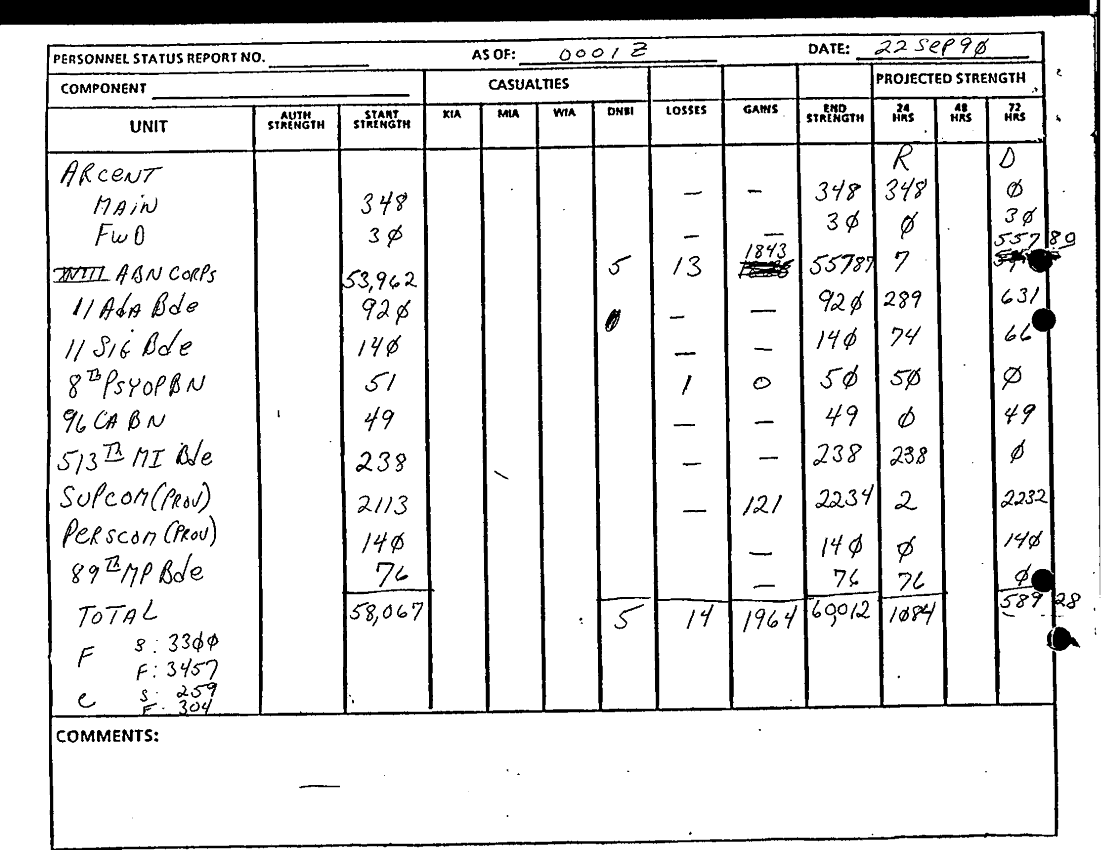 PERSONNEL STATUS REPORT NO. AS OF: 0001Z DATE: 22 SEP 90
COMPONENT CASUALTIES PROJECTED STRENGTH
UNIT AUTH STRENGTH START STRENGTH KIA MIA WIA DNBI LOSSES GAINS END STRENGTH 24 HRS 48 HRS 72 HRS
ARCENT R D
MAIN 348 — — 348 348 Ø
FWD 3Ø — — 3Ø Ø 3Ø
XVIII ABN CORPS 53,962 5 13 1843 55787 7 55780
11 ADA Bde 92Ø — — 92Ø 289 631
11 SIG Bde 14Ø — — 14Ø 74 66
8TH PSYOP BN 51 1 0 5Ø 5Ø Ø
96 CA BN 49 — — 49 Ø 49
513TH MI Bde 238 — — 238 238 Ø
SUPCOM (PROV) 2113 — 121 2234 2 2232
PERSCOM (PROV) 14Ø — 14Ø Ø 14Ø
89TH MP Bde 76 — 76 76 Ø
TOTAL 58,067 5 14 1964 60012 1084 58928
F S: 33ØØ
F: 3457
C S: 259
F: 304
COMMENTS: